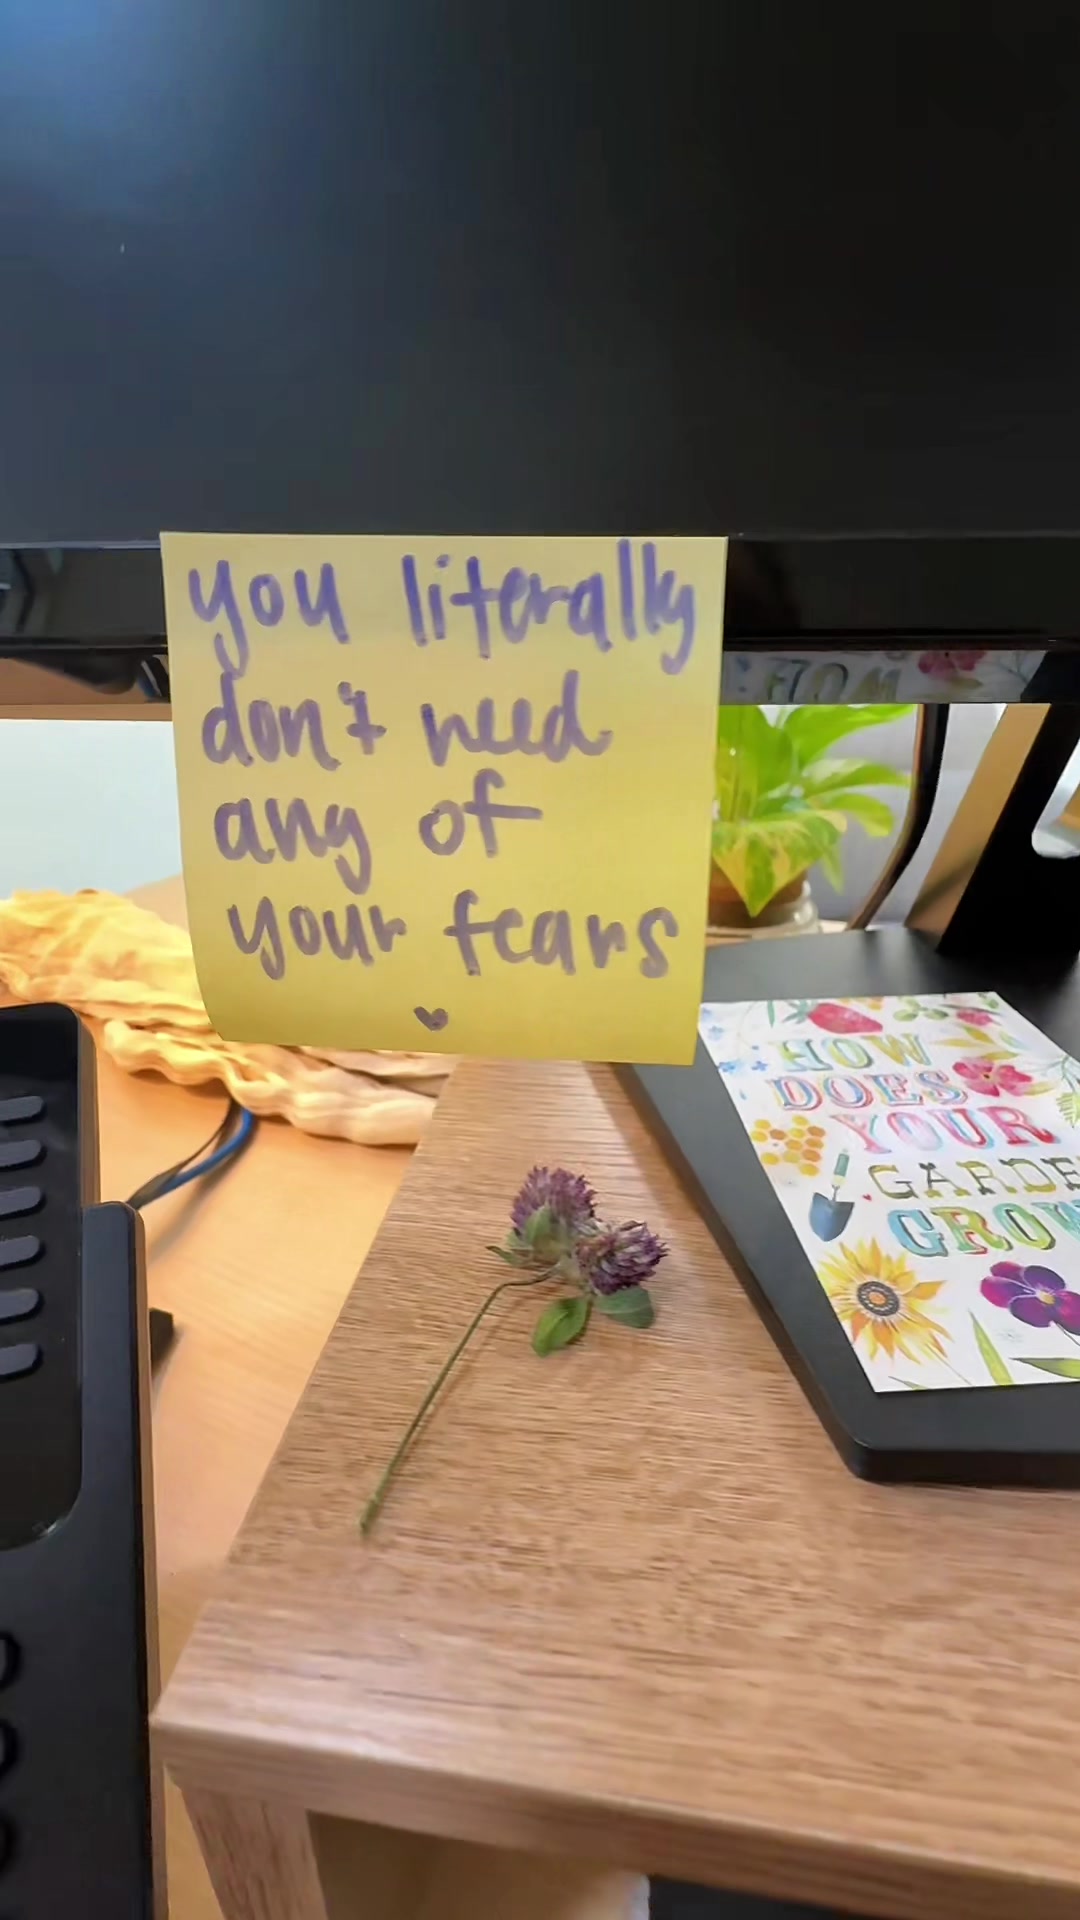 you literally
don't need
any of
your fears
HOW
DOES
YOUR
GROW